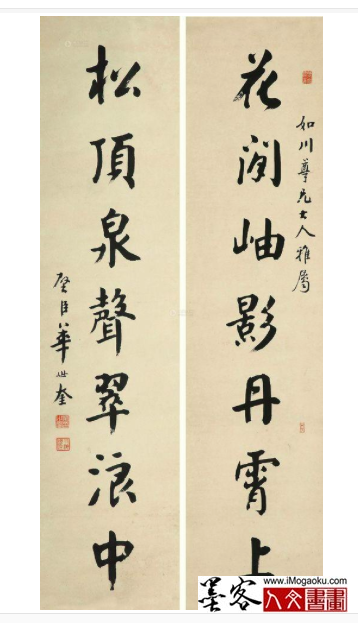 如川尊兄大人雅屬
花間岫影丹霄上
松頂泉聲翠浪中
璧臣華世奎
www.iMogaoku.com
墨客
人文書畫